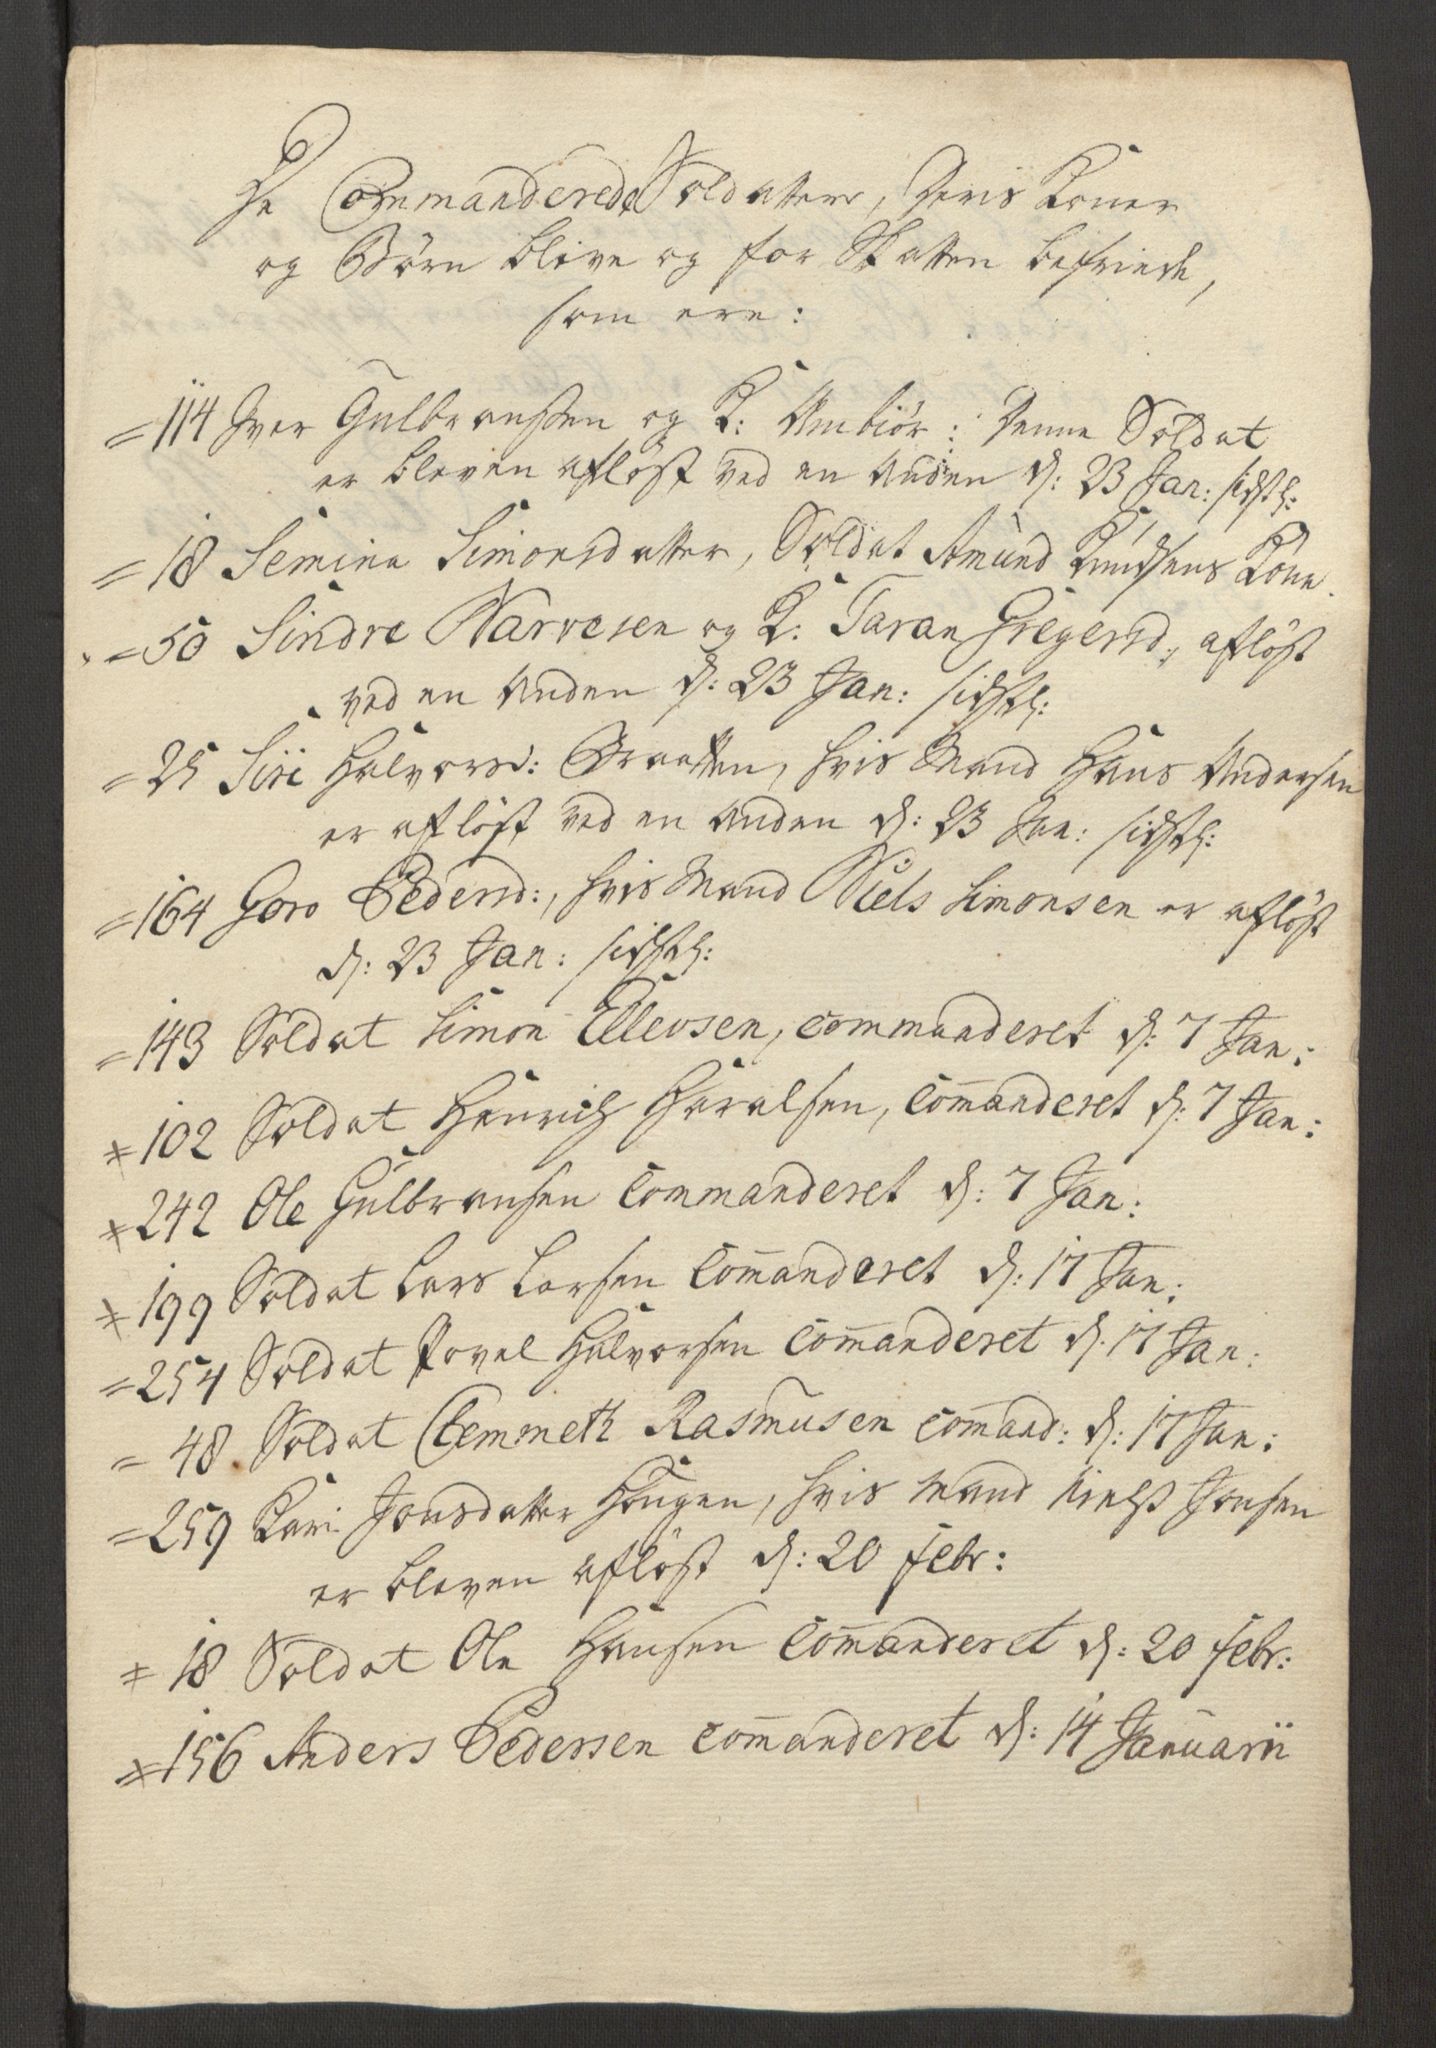 De Commanderede Soldatter, deris Koner
og Börn blive og for Skatten befriede,
som ere:
=114 Iver Gulbransen og K: Anbiör: denne Soldat
er bleven aflöst ved en Anden d: 23 Jan: sidstl:
=18 Semine Simonsdatter, Soldat Amund Knudsens Kone.
=50 Sindre Narvesen og K: Taran Gregersd: aflöst
ved en Anden d: 23 Jan: sidstl:
=25 Siri Halvorsd: Braatten, hvis Mand Hans Andersen
er aflöst ved en Anden d: 23 Jan: sidstl:
=164 Goro Pedersd:, hvis Mand Niels Simonsen er aflöst
d: 23 Jan: sidstl:
=143 Soldat Simon Ellevsen, commanderet d: 7 Jan:
≠102 Soldat Henrich Haralsen, Com̄anderet d: 7 Jan:
≠242 Ole Gulbransen Commanderet d: 7 Jan:
≠199 Soldat Lars Larsen Com̄anderet d: 17 Jan:
=254 Soldat Povel Halvorsen Com̄anderet d. 17 Jan:
=48 Soldat Clemmeth Rasmusen Com̄and: d: 17 Jan:
=259 Kari Jonsdatter Haugen, hvis Mand Nielss Jonsen
er bleven aflöst d: 20 febr:
≠18 Soldat Ole Hansen Com̄anderet d: 20 febr:
≠156 Anders Pedersen Com̄anderet d: 14 Januarii